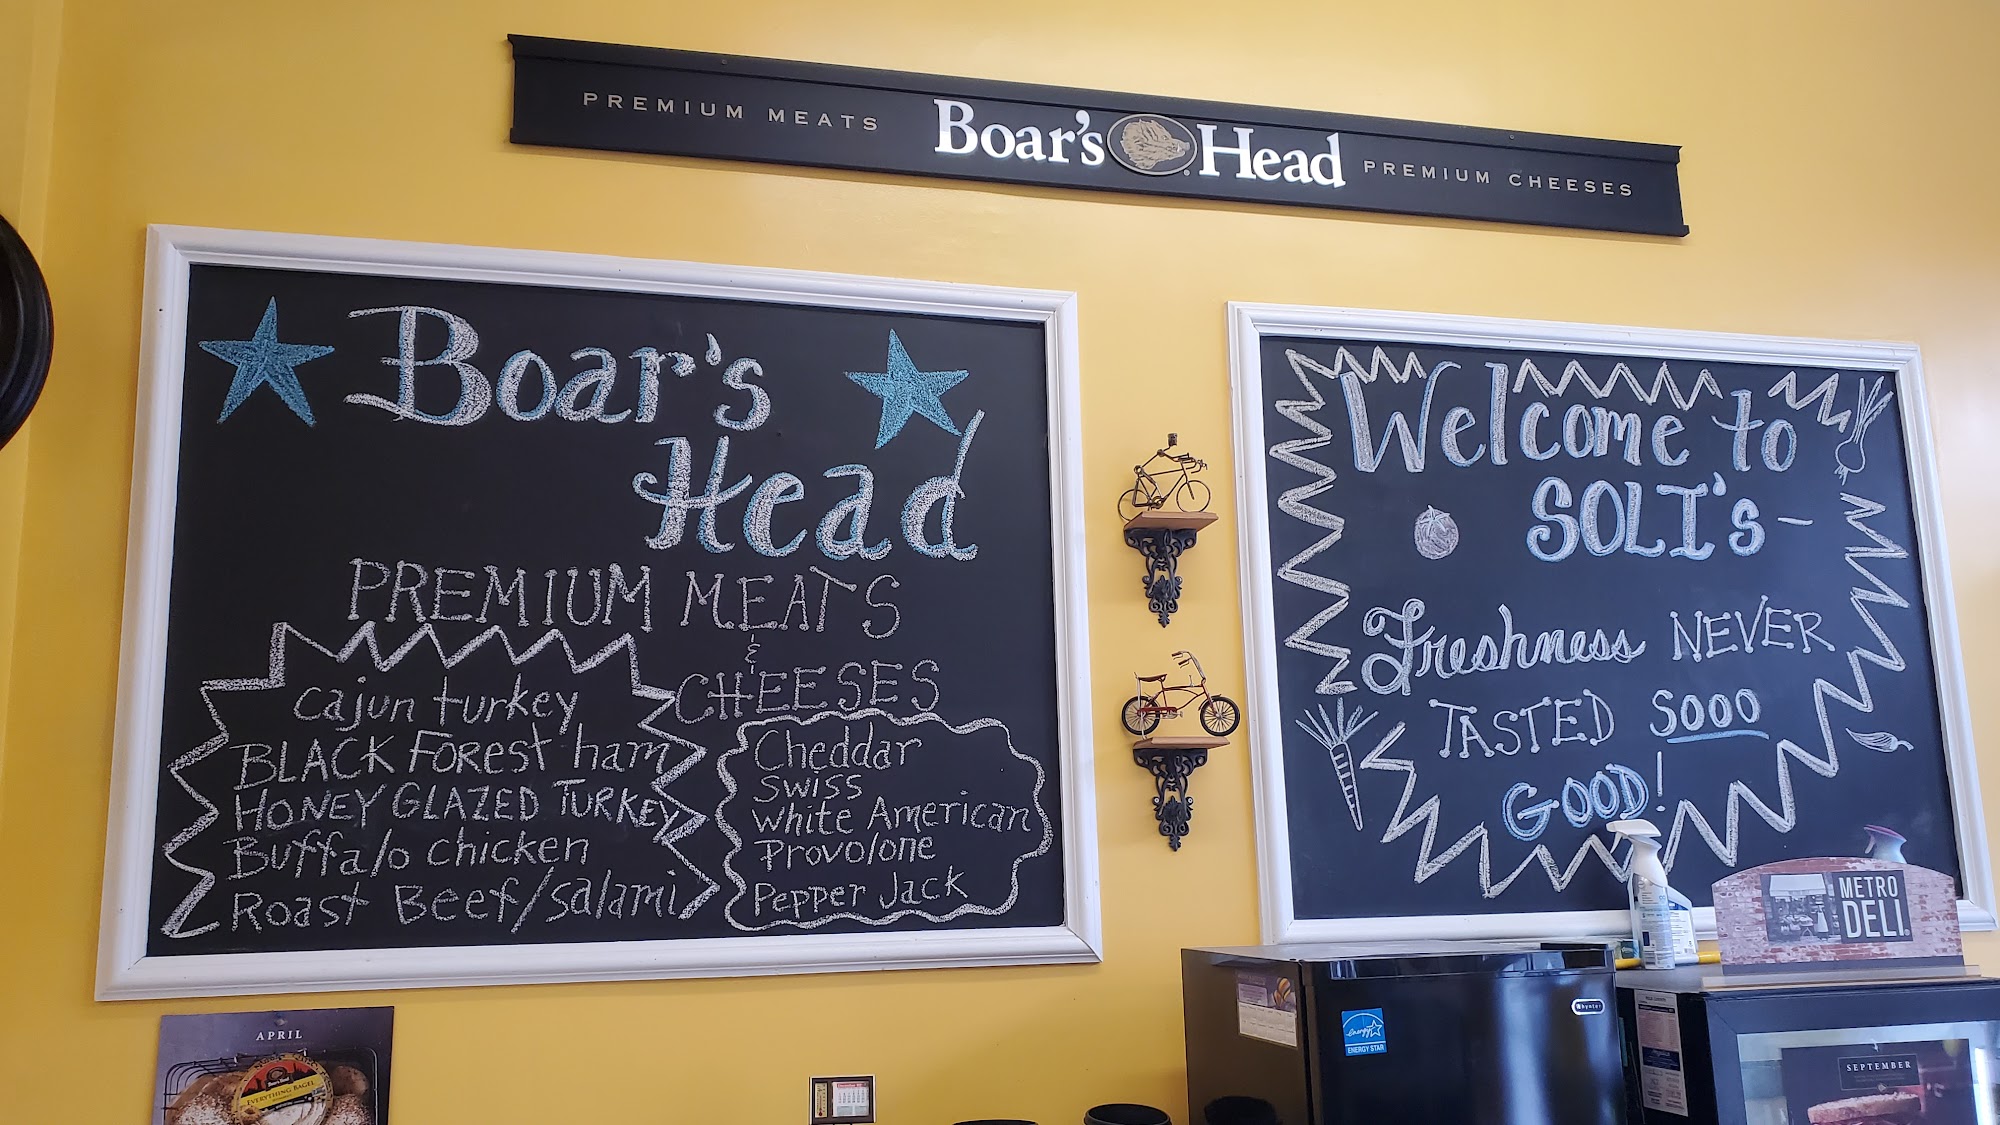 PREMIUM MEATS Boar's Head PREMIUM CHEESES
Boar's
Head
PREMIUM MEATS
&
CHEESES
Cajun turkey
BLACK FOREST ham
HONEY GLAZED TURKEY
Buffalo chicken
Roast Beef/Salami
Cheddar
Swiss
White American
Provolone
Pepper Jack
Welcome to
SOLI's –
Freshness NEVER
TASTED SOOO
GOOD!
METRO
DELI
APRIL
EVERYTHING BAGEL
energy
ENERGY STAR
whynter
SEPTEMBER